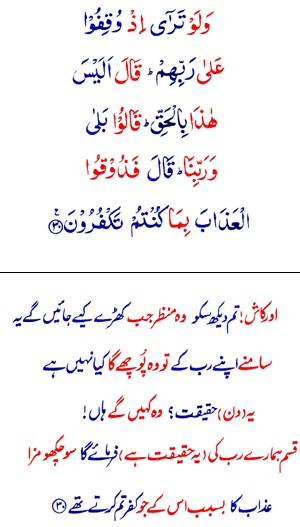 وَلَوْ تَرٰۤى اِذْ وُقِفُوْا
عَلٰى رَبِّهِمْ ؕ قَالَ اَلَيْسَ
هٰذَا بِالْحَقِّ ؕ قَالُوْا بَلٰى
وَرَبِّنَا ؕ قَالَ فَذُوْقُوا
الْعَذَابَ بِمَا كُنْتُمْ تَكْفُرُوْنَ ۠﴿۳۰﴾
اور کاش! تم دیکھ سکو وہ منظر جب کھڑے کیے جائیں گے یہ
سامنے اپنے رب کے تو وہ پُوچھے گا کیا نہیں ہے
یہ (دن) حقیقت؟ وہ کہیں گے ہاں!
قسم ہمارے رب کی (یہ حقیقت ہے) فرمائے گا سو چکھو مزا
عذاب کا بسبب اس کے جو کفر تم کرتے تھے ﴿۳۰﴾